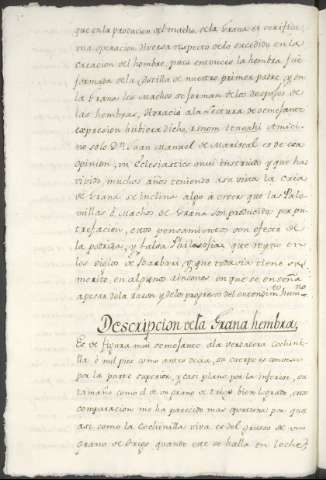 que en la producion del macho de la Grana se verifica
una operacion diversa respecto de lo sucedido en la
creacion del hombre, pues entonces la hembra fue
formada de la costilla de nuestro primer padre, y en
la Grana los machos se forman de los despojos de
las hembras, Horacio a la lectura de semejante
expresion hubiera dicho risum teneatis Amici:
no solo Dn. Juan Manuel de Mariscal es de esa
opinion, un Eclesiastico mui instruido y que ha
vivido muchos años teniendo a su vista la cria
de Grana se inclina algo a creer que las Palo-
millas ó Machos de Grana son producidos por pu-
trefaccion, estos pensamientos son efecto de
la podrida, y falsa Philosofia, que reyno en
los siglos de Barbari y que todavia tiene su
merito en algunos rincones en que se enseña
apesar de la razon y de los progresos del entendim.to hum.no
Descripcion de la Grana hembra,
Es de figura mui semejante a la verdadera cochini-
lla ó mil pies como antes decia, su cuerpo es convexo
por la parte superior, y casi plano por la inferior, su
tamaño como el de un grano de trigo bien logrado, esta
comparacion me ha parecido mas oportuna por que
asi como la cochinilla viva es del grueso de un
grano de trigo quando este se halla en leche,